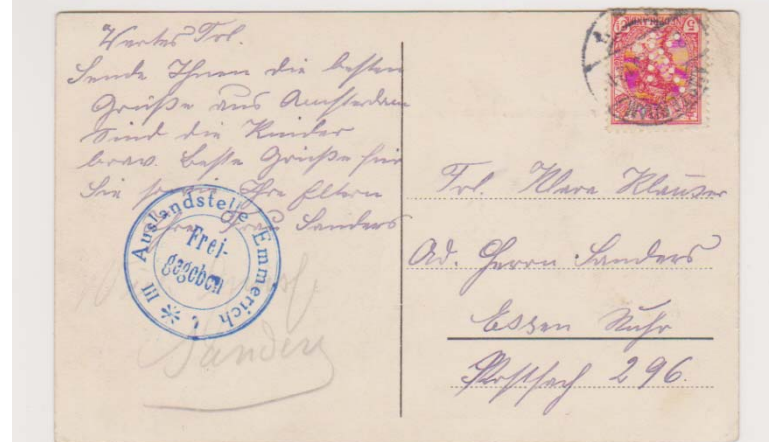 Wertes Frl.
Sende Ihnen die besten
Grüße aus Amsterdam
Sind die Kinder
brav. Beste Grüße für
Sie sowie Ihre Eltern
Ihre Frau Sanders
Auslandstelle Emmerich
Frei-
gegeben
III
Sanders
Frl. Klara Klauser
Ad. Herrn Sanders
Essen Ruhr
Postfach 296.
5